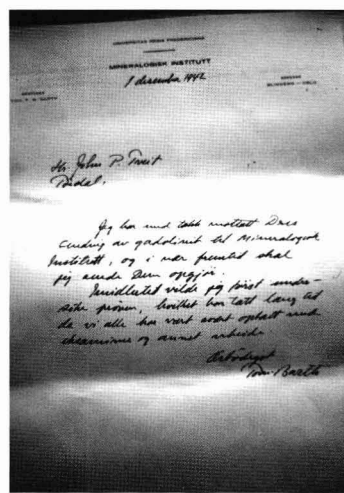 UNIVERSITAS REGIA FREDERICIANA
MINERALOGISK INSTITUTT
1 desember 1942
BLINDERN - OSLO
Hr. John P. Tveit
Tørdal.
Jeg har med takk mottatt Deres
sending av gadolinit til Mineralogisk
Institutt, og i nær fremtid skal
jeg sende Dem opgjør.
Imidlertid vilde jeg først under-
søke prøven, hvilket har tatt lang tid
da vi alle har vært svært optatt med
eksaminer og annet arbeide
Ærbødigst
Tom. Barth